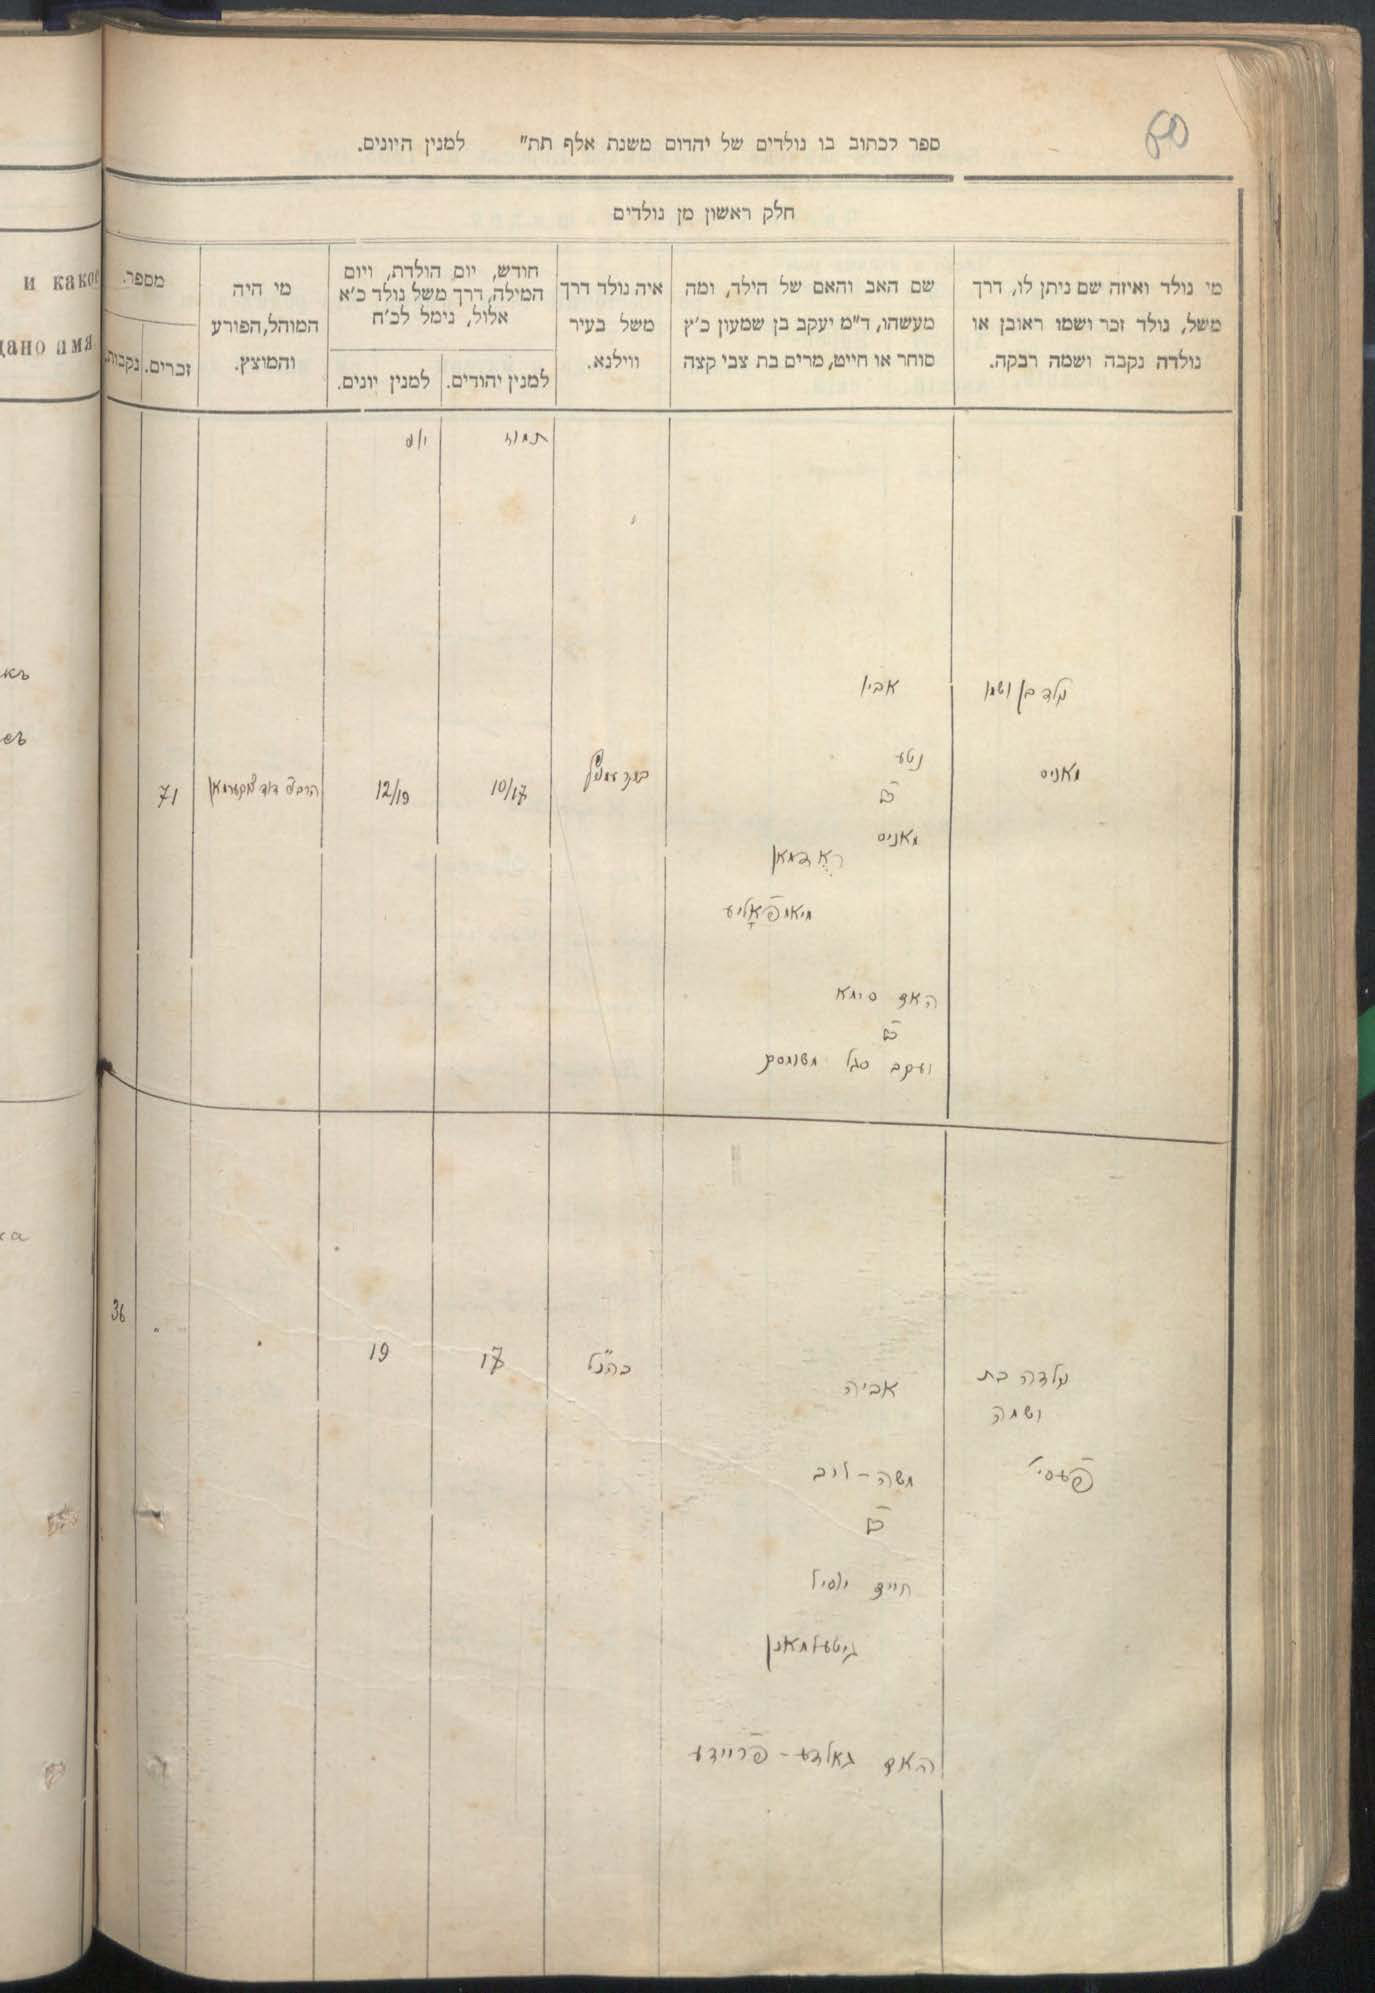 60
ספר לכתוב בו נולדים של יהדום משנת אלף תת״ למנין היונים.
חלק ראשון מן נולדים
מי נולד ואיזה שם ניתן לו, דרך
משל, נולד זכר ושמו ראובן או
נולדה נקבה ושמה רבקה.
שם האב והאם של הילד, ומה
מעשהו, ד״מ יעקב בן שמעון כ׳ץ
סוחר או חייט, מרים בת צבי קצה
איה נולד דרך
משל בעיר
ווילנא.
חודש, יום הולדת, ויום
המילה, דרך משל נולד כ׳א
אלול, נימל לכ׳ח
למנין יהודים.
למנין יונים.
מי היה
המוהל, הפורע
והמוצץ.
מספר.
זכרים.
נקבות.
и какое
дано имя
תמוז
יולי
נולד בן ושמו
מאניס
אביו
נטע
ב״ר
מאניס
האם סימא
ב״ר
יעקב סגל
10/17
12/19
71
נולדה בת
ושמה
פעסי
אביה
משה - ליב
ב״ר
חיים יוסיל
גיטעלמאן
האם גאלדע - פריידע
כהנ״ל
17
19
36